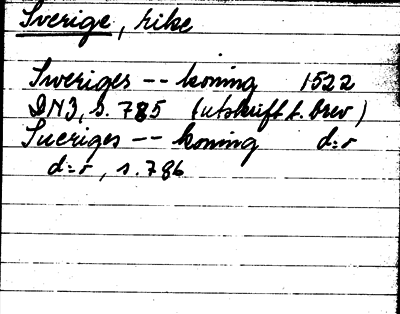 Sverige, rike
Sweriges -- koning 1522
DN3, s. 785 (utskrift f. brev)
Sueriges -- koning d:o
d:o, s. 786